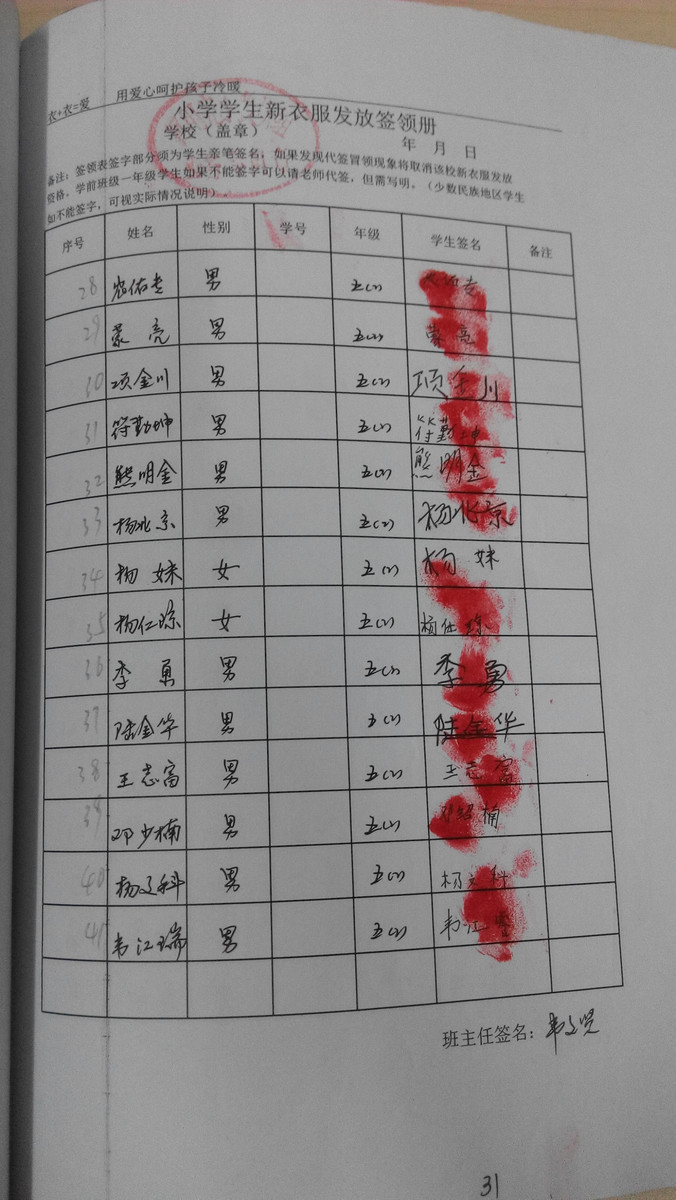 衣+衣=爱 用爱心呵护孩子冷暖
小学学生新衣服发放签领册
学校（盖章） 年 月 日
备注：签领表签字部分须为学生亲笔签名，如果发现代签冒领现象将取消该校新衣服发放
资格，学前班级一年级学生如果不能签字可以请老师代签，但需写明。（少数民族地区学生
如不能签字，可视实际情况说明）
序号 姓名 性别 学号 年级 学生签名 备注
28 农佑专 男 五
29 蒙亮 男 五 蒙亮
30 项金川 男 五 项金川
31 符勤坤 男 五 符勤坤
32 熊明金 男 五 熊明金
33 杨北京 男 五 杨北京
34 杨妹 女 五 杨妹
35 杨仁琼 女 五 杨仕琼
36 李勇 男 五 李勇
37 陆金华 男 五 陆金华
38 王志富 男 五 王志富
39 邓少楠 男 五 楠
40 杨文科 男 五 杨文科
41 韦江瑞 男 五 韦江
班主任签名：
31